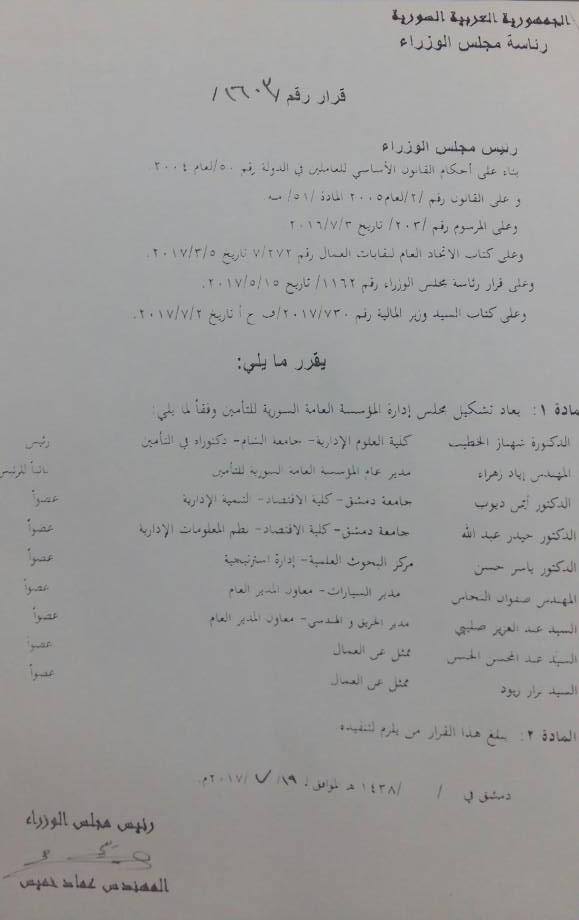 الجمهورية العربية السورية
رئاسة مجلس الوزراء
قرار رقم /١٦٠٣/
رئيس مجلس الوزراء
بناء على أحكام القانون الأساسي للعاملين في الدولة رقم /٥٠/لعام ٢٠٠٤.
و على القانون رقم /٢/لعام٢٠٠٥ المادة /٥١/ منه
وعلى المرسوم رقم /٢٠٣/ تاريخ ٢٠١٦/٧/٣
وعلى كتاب الاتحاد العام لنقابات العمال رقم ٧/٢٧٢ تاريخ ٢٠١٧/٣/٥.
وعلى قرار رئاسة مجلس الوزراء رقم ١١٦٢/ تاريخ ٢٠١٧/٥/١٥.
وعلى كتاب السيد وزير المالية رقم ٢٠١٧/٧٣٠/ف ح أ تاريخ ٢٠١٧/٧/٢.
يقرر ما يلي:
مادة ١: يعاد تشكيل مجلس إدارة المؤسسة العامة السورية للتأمين وفقاً لما يلي:
الدكتورة شهناز الخطيب كلية العلوم الإدارية- جامعة الشام- دكتوراه في التأمين رئيس
المهندس إياد زهراء مدير عام المؤسسة العامة السورية للتأمين نائباً للرئيس
الدكتور أيمن ديوب جامعة دمشق- كلية الاقتصاد- التنمية الإدارية عضواً
الدكتور حيدر عبد الله جامعة دمشق- كلية الاقتصاد- نظم المعلومات الإدارية عضواً
الدكتور ياسر حسن مركز البحوث العلمية- إدارة استرتيجية عضواً
المهندس صفوان النحاس مدير السيارات- معاون المدير العام عضواً
السيد عبد العزيز صليبي مدير الحريق و الهندسي- معاون المدير العام عضواً
السيد عبد المحسن الحسن ممثل عن العمال عضواً
السيد نزار زيود ممثل عن العمال عضواً
المادة ٢: يبلغ هذا القرار من يلزم لتنفيذه
دمشق في / /١٤٣٨ هـ الموافق لـ ١٩/ ٧ /٢٠١٧م.
رئيس مجلس الوزراء
المهندس عماد خميس